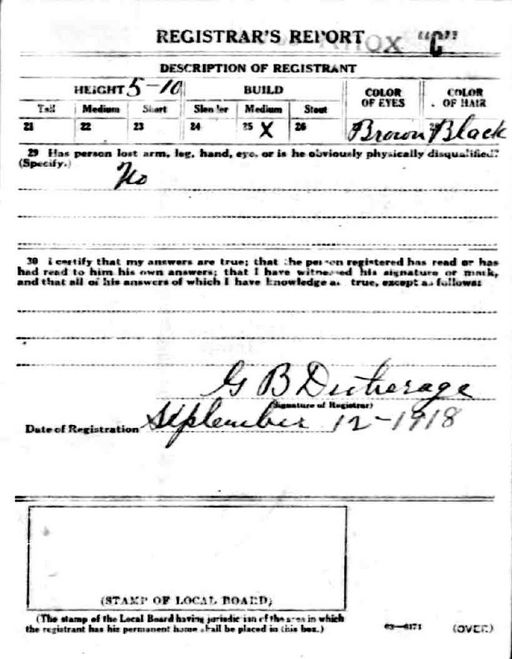 REGISTRAR'S REPORT KNOX "C"
DESCRIPTION OF REGISTRANT
HEIGHT 5-10 BUILD COLOR OF EYES COLOR OF HAIR
Tall Medium Short Slender Medium Stout
21 22 23 24 25 X 26 Brown Black
29 Has person lost arm, leg, hand, eye, or is he obviously physically disqualified?
(Specify.) No
30 I certify that my answers are true; that the person registered has read or has
had read to him his own answers; that I have witnessed his signature or mark,
and that all of his answers of which I have knowledge are true, except as follows:
G B
(Signature of Registrar)
Date of Registration September 12-1918
(STAMP OF LOCAL BOARD)
(The stamp of the Local Board having jurisdiction of the area in which
the registrant has his permanent home shall be placed in this box.)
03-6171 (OVER)